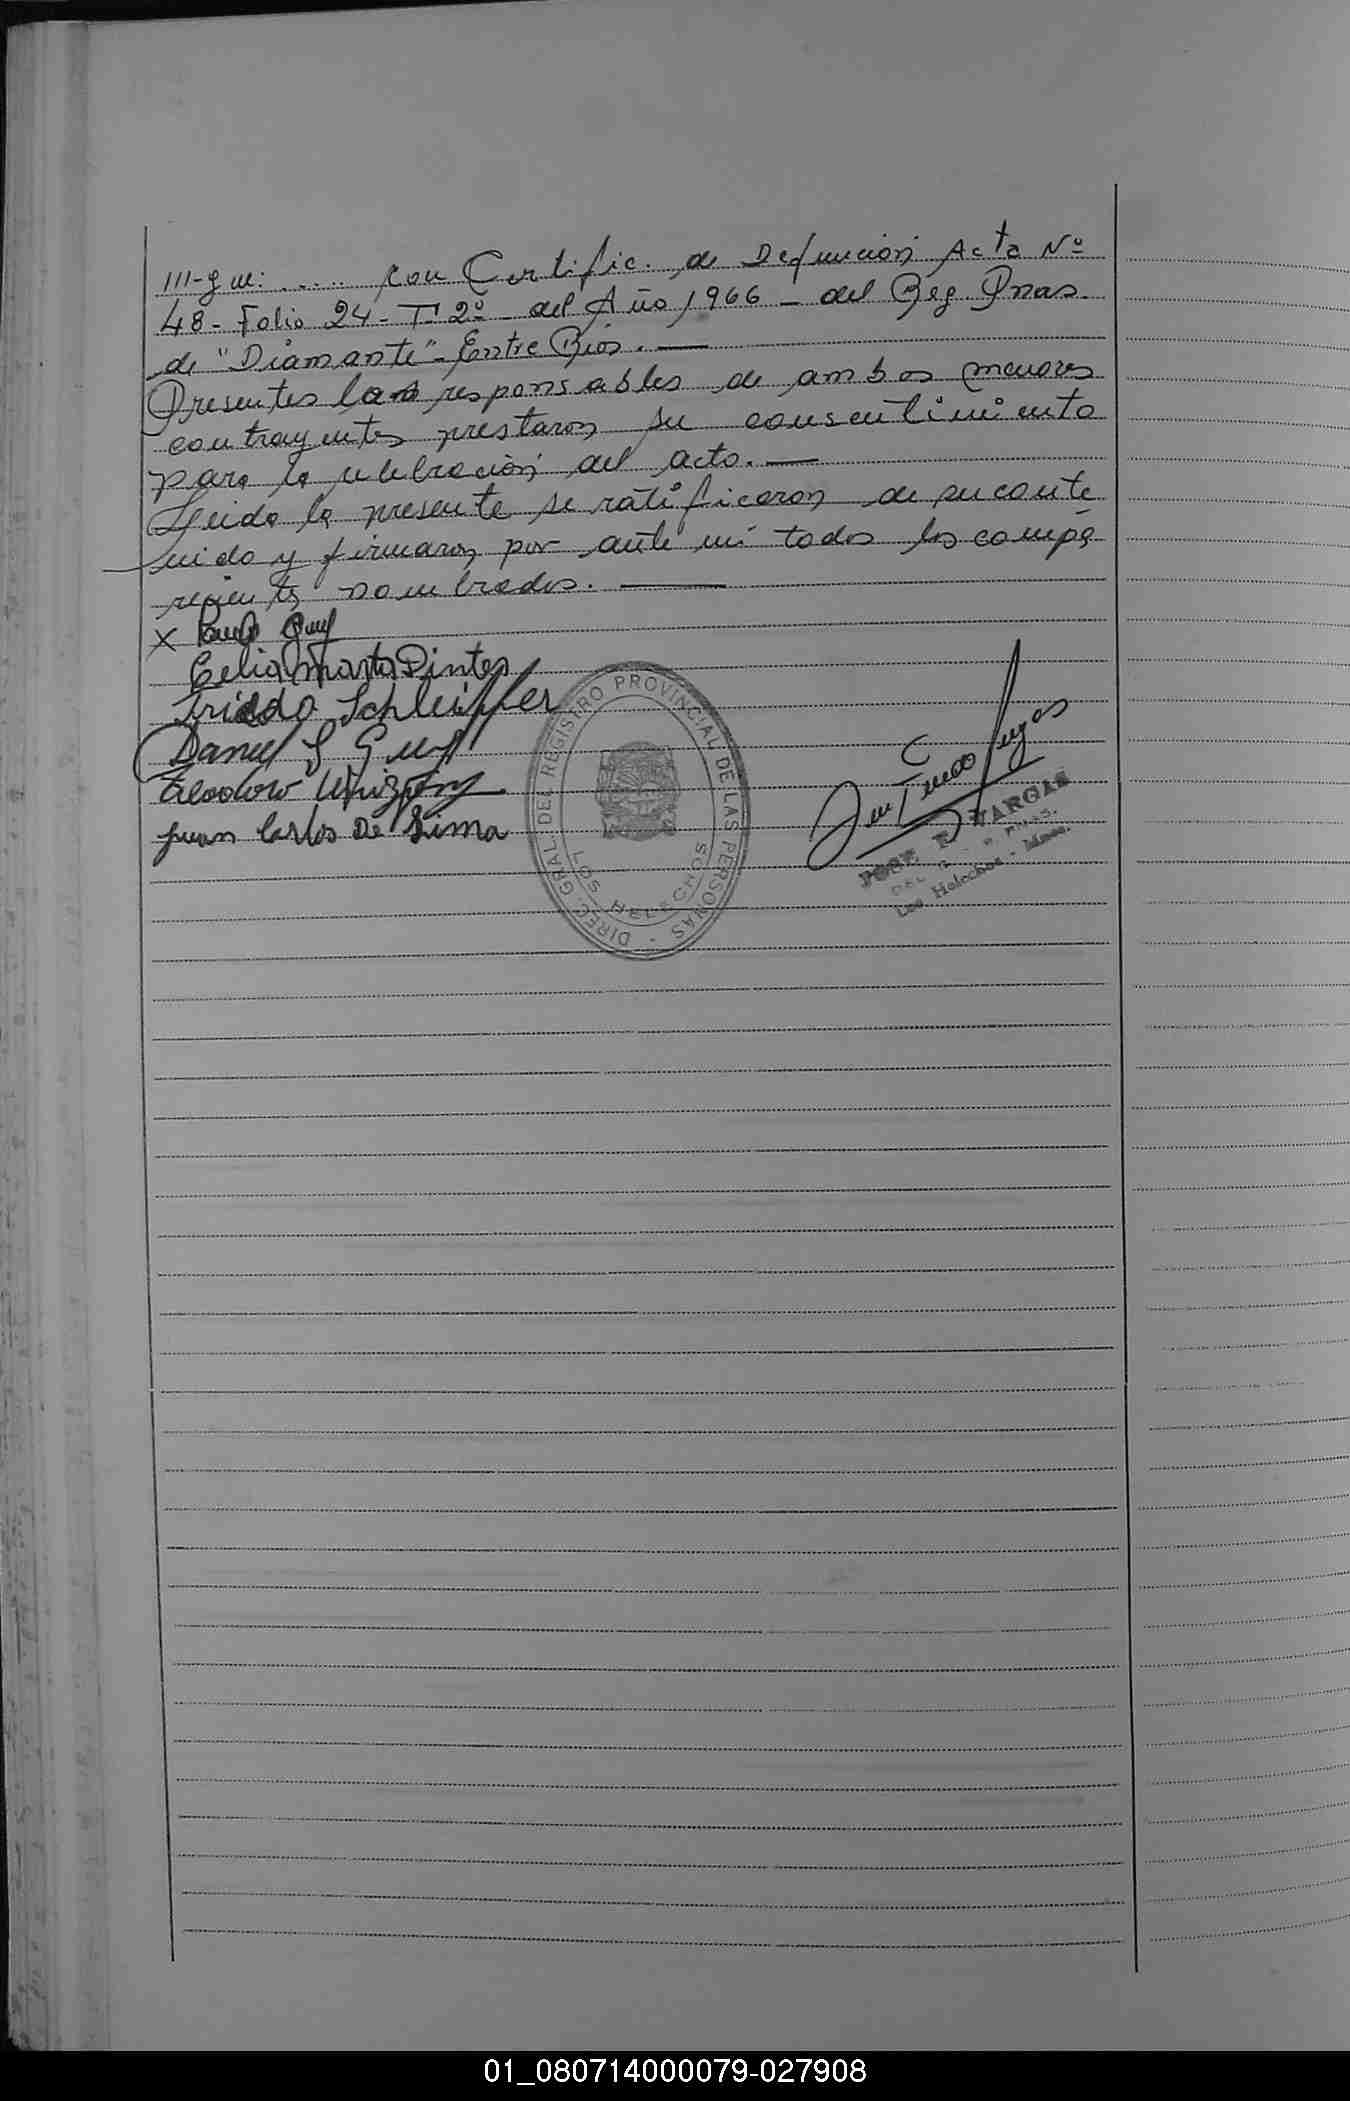 III-que: ..... con Certific. de Defunción Acta Nº
48- Folio 24- Tº 2º - del Año 1966 - del Reg. Pnas.
de "Diamante"- Entre Rios. —
Presentes los responsables de ambos menores
contrayentes prestaron su consentimiento
para la celebración del acto. —
Leida la presente se ratificaron de su conte
nido y firmaron por ante mí todos los compa
recientes nombrados. —
X
Celia Marta Pintos
Schleiffer
Daniel
Teodoro
Juan Carlos De Lima
DIREC. GRAL. DEL REGISTRO PROVINCIAL DE LAS PERSONAS -
LOS HELECHOS
JOSE E. VARGAS
Los Helechos - Mnes.
01_080714000079-027908